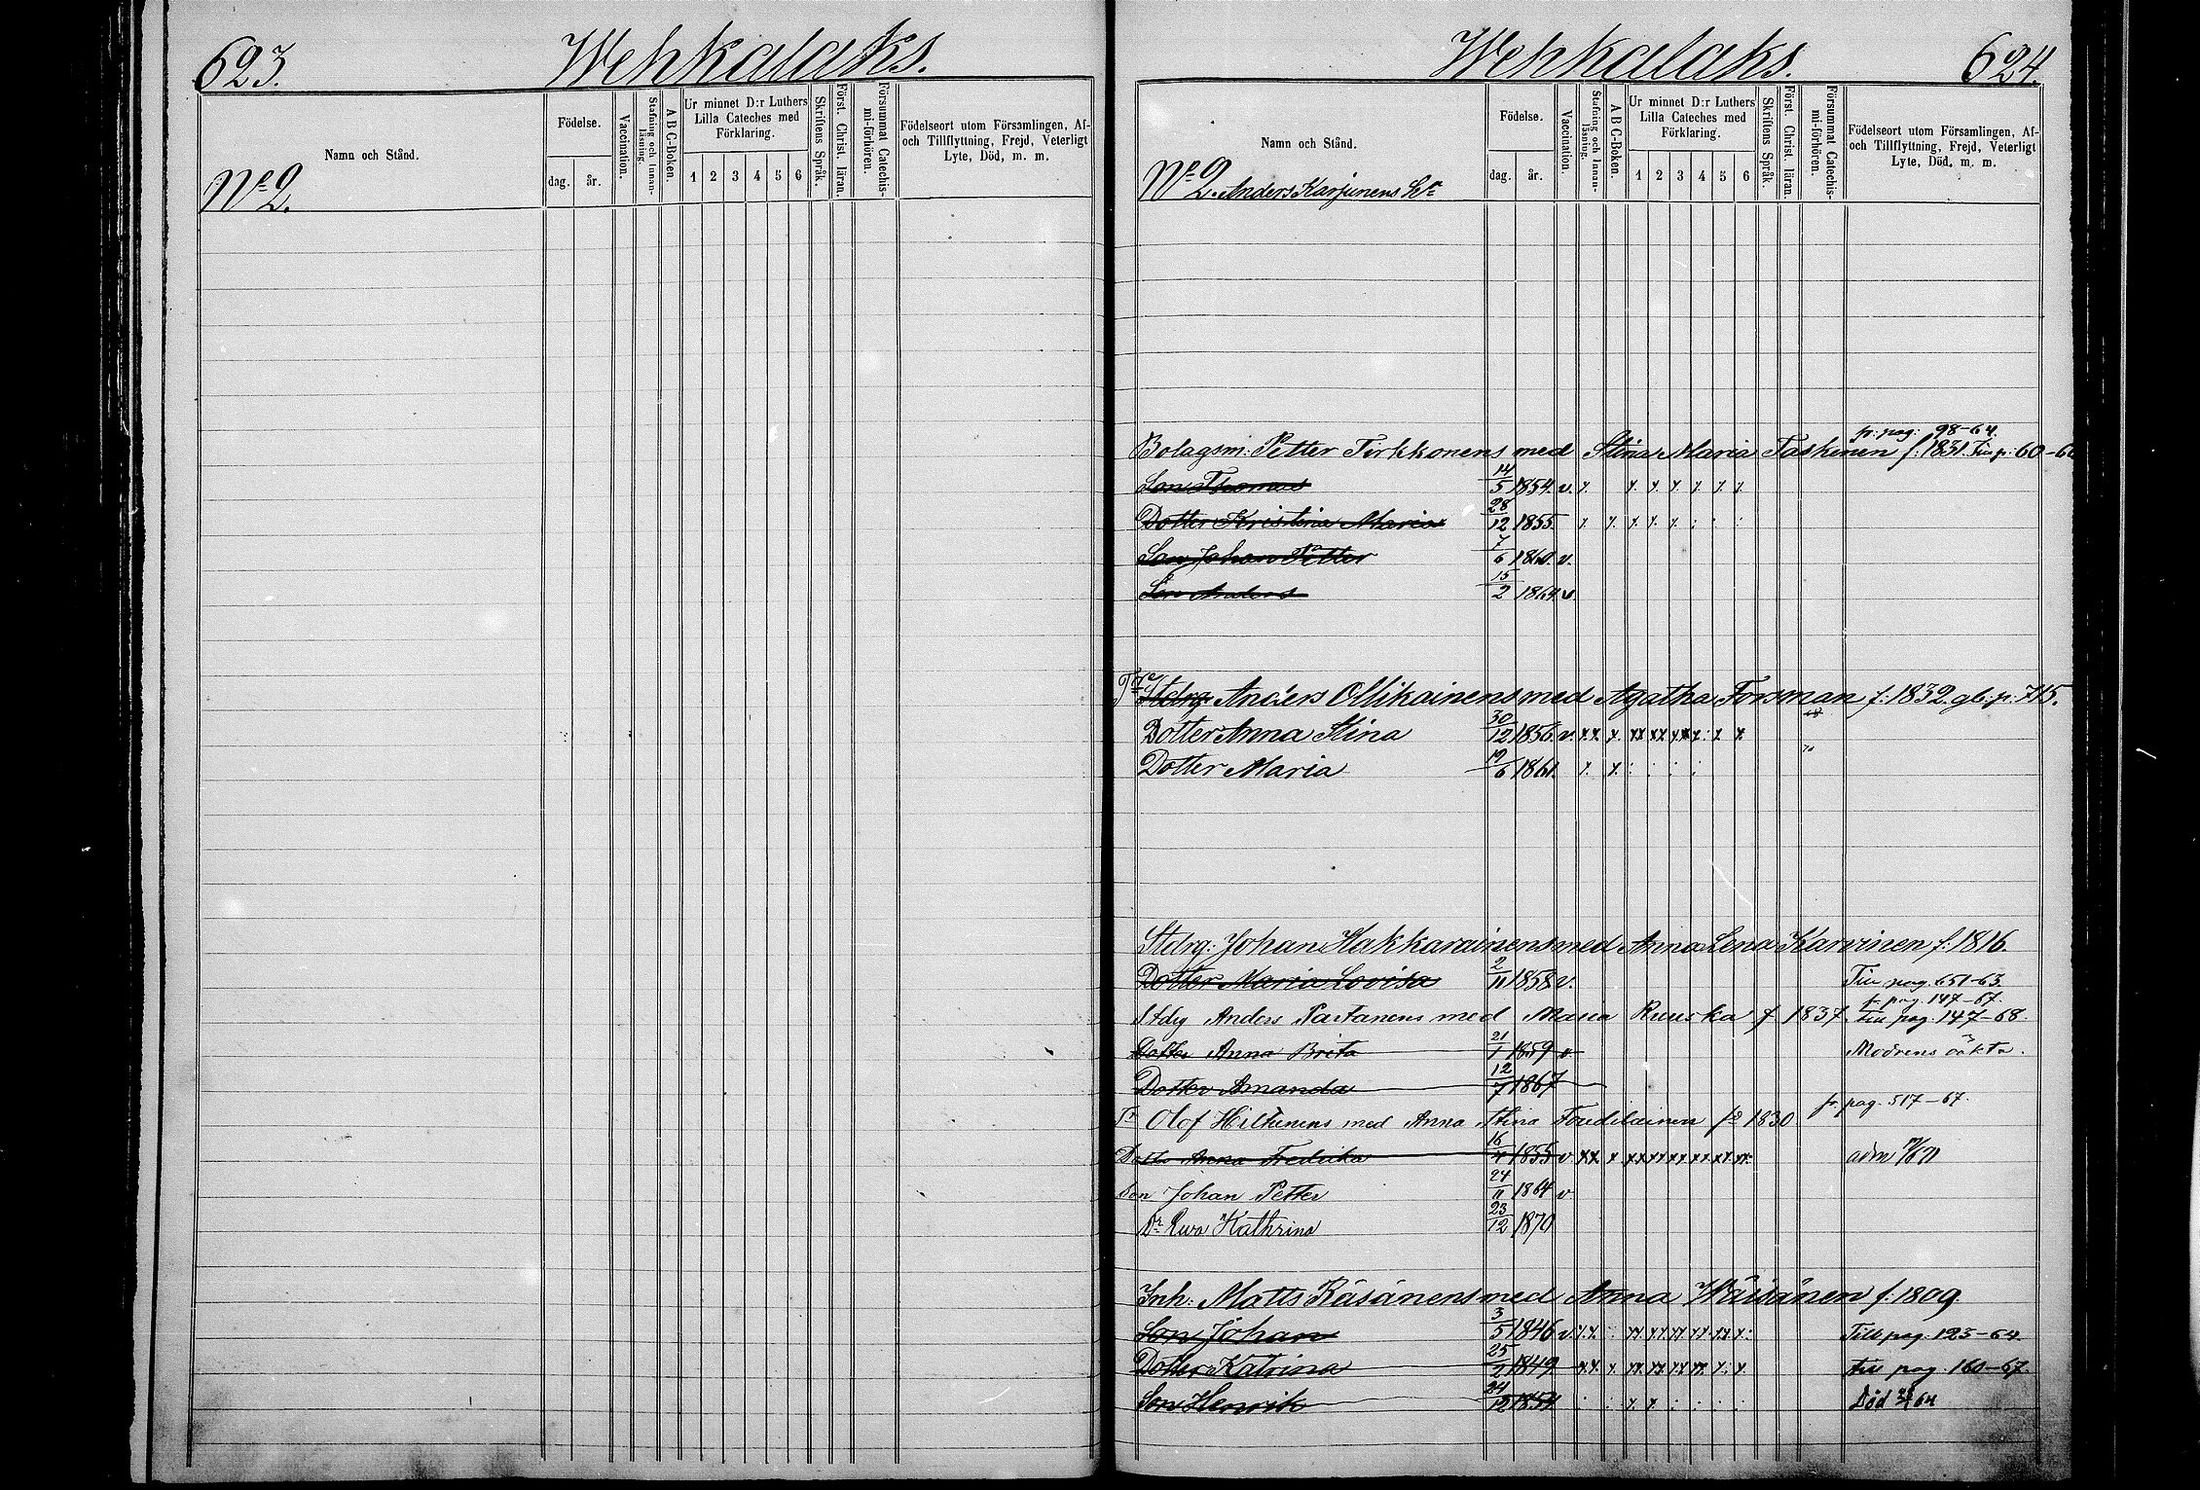 623.
Wehkalaks.
Namn och Stånd.
Födelse.
dag.
år.
Vaccination.
Stafning och Innan-
läsning.
A B C-Boken.
Ur minnet D:r Luthers
Lilla Cateches med
Förklaring.
1 2 3 4 5 6
Skriftens Språk.
Först. Christ. läran.
Försummat Catechis-
mi-förhören.
Födelseort utom Församlingen, Af-
och Tillflyttning, Frejd, Veterligt
Lyte, Död, m. m.
No 2.
Wehkalaks.
624.
Namn och Stånd.
Födelse.
dag.
år.
Vaccination.
Stafning och Innan-
läsning.
A B C-Boken.
Ur minnet D:r Luthers
Lilla Cateches med
Förklaring.
1 2 3 4 5 6
Skriftens Språk.
Först. Christ. läran.
Försummat Catechis-
mi-förhören.
Födelseort utom Församlingen, Af-
och Tillflyttning, Frejd, Veterligt
Lyte, Död, m. m.
No 2. Anders Karjunens
fr. pag: 98-64.
Bolagsm: Petter Tirkkonens med Stina Maria Taskinen f. 1831. Till p. 60-6
Son Thomas 14/5 1854. v.
Dotter Kristina Maria 28/12 1855
Son Johan Petter 7/6 1860. v.
Son Anders 15/2 1864 v.
Stdrg Anders Ollikainens med Agatha Forsman f. 1832. gb. p. 715.
Dotter Anna Stina 30/12 1856 v.
Dotter Maria 19/6 1861.
Stdrg: Johan Hakkarainens med Anna Lena Karvinen f. 1816.
Dotter Maria Lovisa 2/11 1858 v. Till pag. 651-63.
fr pag. 147-67.
Stdrg Anders Partanens med Maria Ruuska f 1837. till pag. 147-68.
Dotter Anna Brita 21/1 1859 v Modrens oäkta.
Dotter Amanda 12/7 1867
fr. pag. 517-67.
Olof Hiltunens med Anna Stina Toudilainen 1830
Dotter Anna Fredrika 16/4 1855 v. adm
Son Johan Petter 24/11 1864 v
Dr Ewa Kathrina 23/12 1870
Inh: Matts Räsänens med Anna Wäisänen f. 1809
Son Johan 3/5 1846 v. Till pag. 123-64.
Dotter Katrina 25/2 1849 till pag. 160-67.
Son Henrik 24/12 1854 Död 64